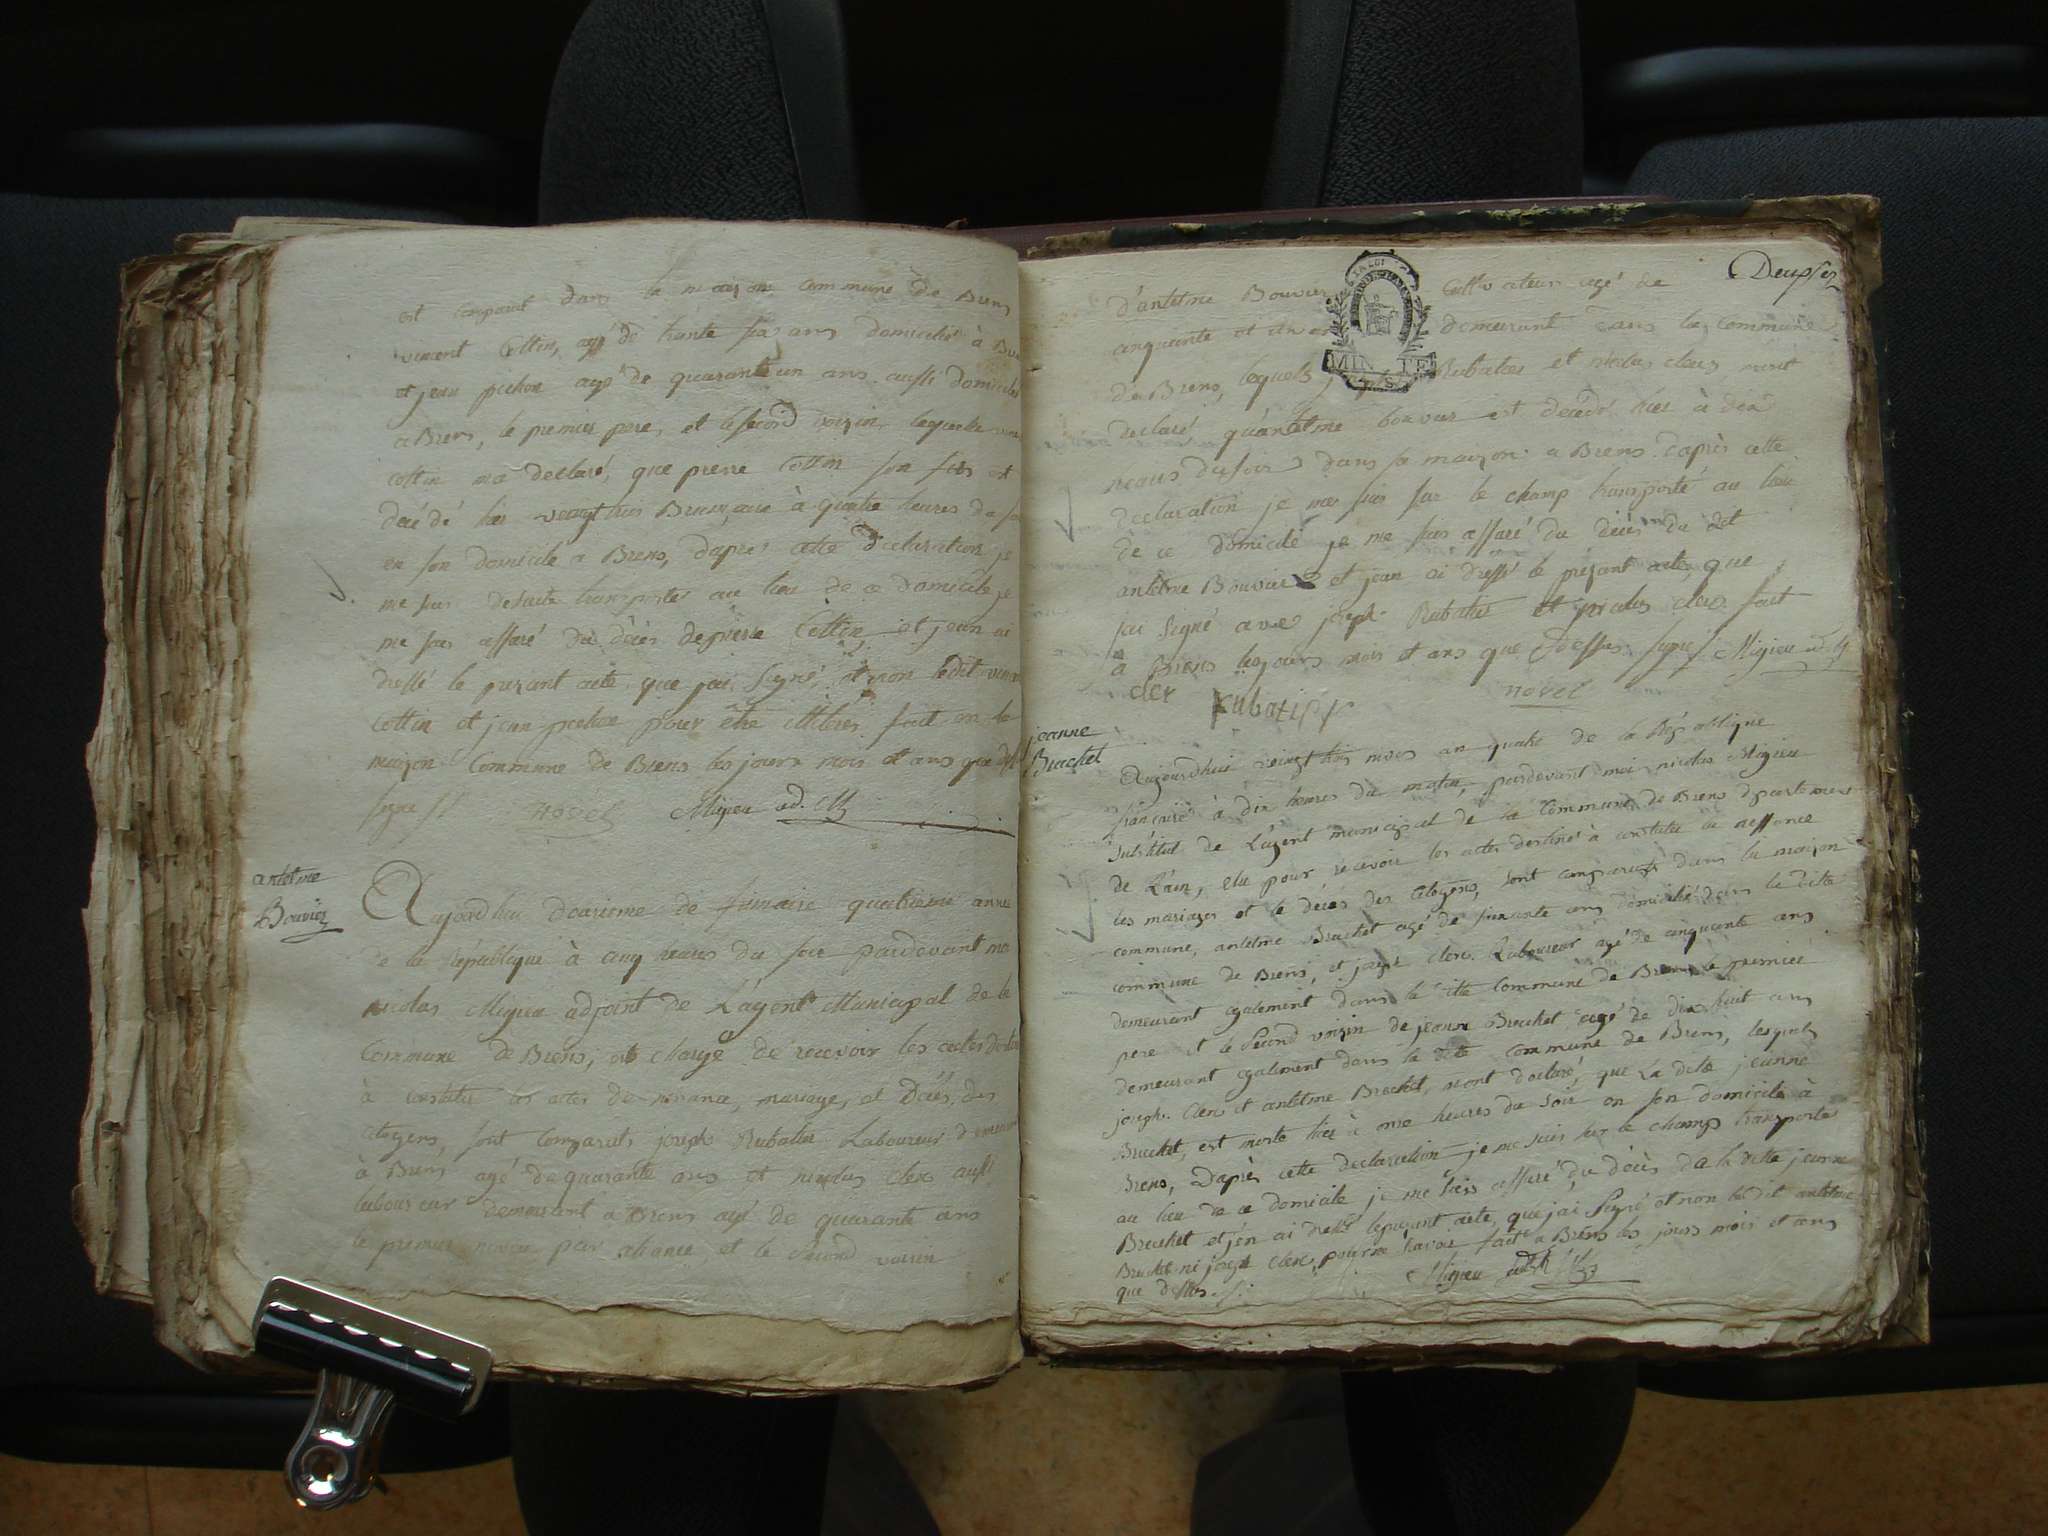 est comparut dans la maison commune de Brens
vincent Cottin, agé de trante six ans domicilié à Bre
et jean pechon agé de quarante un ans aussi domicilié
a Brens, le premier pere, et le second voizin, lequel
cottin ma declaré, que pierre Cottin son fils est
décédé hier vaingt trois Brumaire à quatre heures du so
en son domicile a Brens, dapres cette declaration je
me suis desuite transporter au lieu de ce domicile je
me suis assuré du décès de pierre Cottin, et jean ai
dressé le prezant acte que jai Signé, et non ledit vincent
Cottin et jean pechon pour être illiteres fait en la
maizon Commune de Brens les jours mois et ans que d
signe novel Migieu ad.
antelme
Bouvier
Aujordhui douzieme de frimaire quatrieme année
de la république à cinq heures du soir pardevant moi
nicolas Migieu adjoint de L'agent Municipal de la
Commune de Brens, et chargé de recevoir les actes
à constater les actes de naisance, mariage, et Décés, des
citoyens, sont Comparuts joseph Rubatier Laboureur demeurant
à Brens agé de quarante ans et nicolas Clerc aussi
laboureur demeurant a Brens agé de quarante ans
le premier par aliance, et le Second voizin
d'antelme Bouvier Cultivateur agé de
cinquante et un demeurant dans la Commune
de Brens, lequels Rubatier et nicolas clerc mont
declaré quantelme bouvier est décédé hier à dix
heures du soir dans sa maizon a Brens daprès cette
declaration je me suis sur le champ transporté au lieu
de ce domicile je me suis assuré du décés du dit
antelme Bouvier et jean ai dressé le prezant acte, que
jai Signé avec joseph Rubatier et nicolas clerc fait
à Brens les jours mois et ans que dessus signe Migieu
clex rubatier novel
jeanne
Brachet
MINUTE
Aujourdhui vaingt trois nivos an quatre de la République
française à dix heures du matin, pardevant moi nicolas Migieu
Substitut de L'agent municipal de la Commune de Brens departement
de L'ain, elu pour recevoir les actes destiné à constater la nessance
les mariages et le décés des Citoyens, sont comparuts dans la maizon
commune, antelme Brachet agé de soixante ans domicilié dans la dite
commune de Brens, et joseph clerc Laboureur agé de cinquante ans
demeurant egalement dans la dite Commune de Brens le premier
pere et le Second voizin de jeanne Brachet agé de dix huit ans
demeurant egalement dans la dite commune de Brens, lesquels
joseph Clerc et antelme Brachet, mont declaré, que La dite jeanne
Brachet, est morte hier à onze heures du soir en son domicile à
Brens, Dapres cette declaration je me suis sur le champ transporté
au lieu de ce domicile je me suis assuré du décès de la ditte jeanne
Brachet et j'en ai dressé le prezant acte, que jai Signé et non le dit antelme
Brachet ni joseph Clerc pour ne savoir fait a Brens les jours mois et ans
que dessus
Migieu